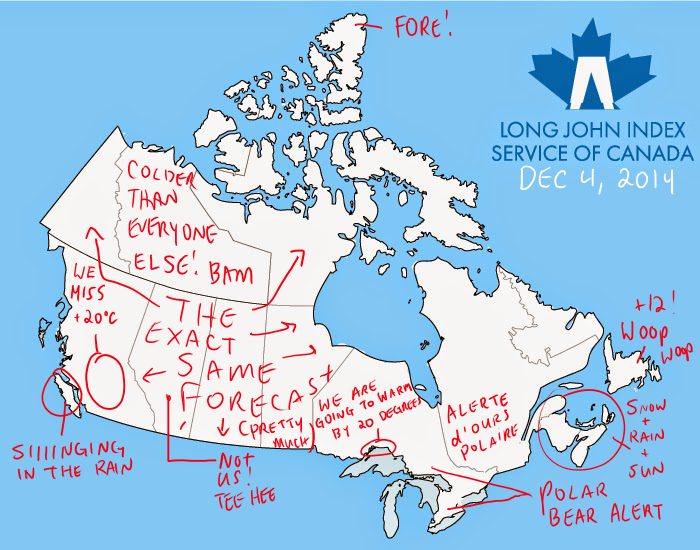 FORE!
LONG JOHN INDEX
SERVICE OF CANADA
DEC 4, 2014
COLDER
THAN
EVERYONE
ELSE! BAM
WE
MISS
+20°C
THE
EXACT
SAME
FORECAST
(PRETTY
MUCH)
WE ARE
GOING TO WARM
BY 20 DEGREES
ALERTE
d'OURS
POLAIRE
+12!
WOOP
WOOP
SNOW
+
RAIN
+
SUN
SIIIINGING
IN THE RAIN
NOT
US!
TEE HEE
POLAR
BEAR ALERT